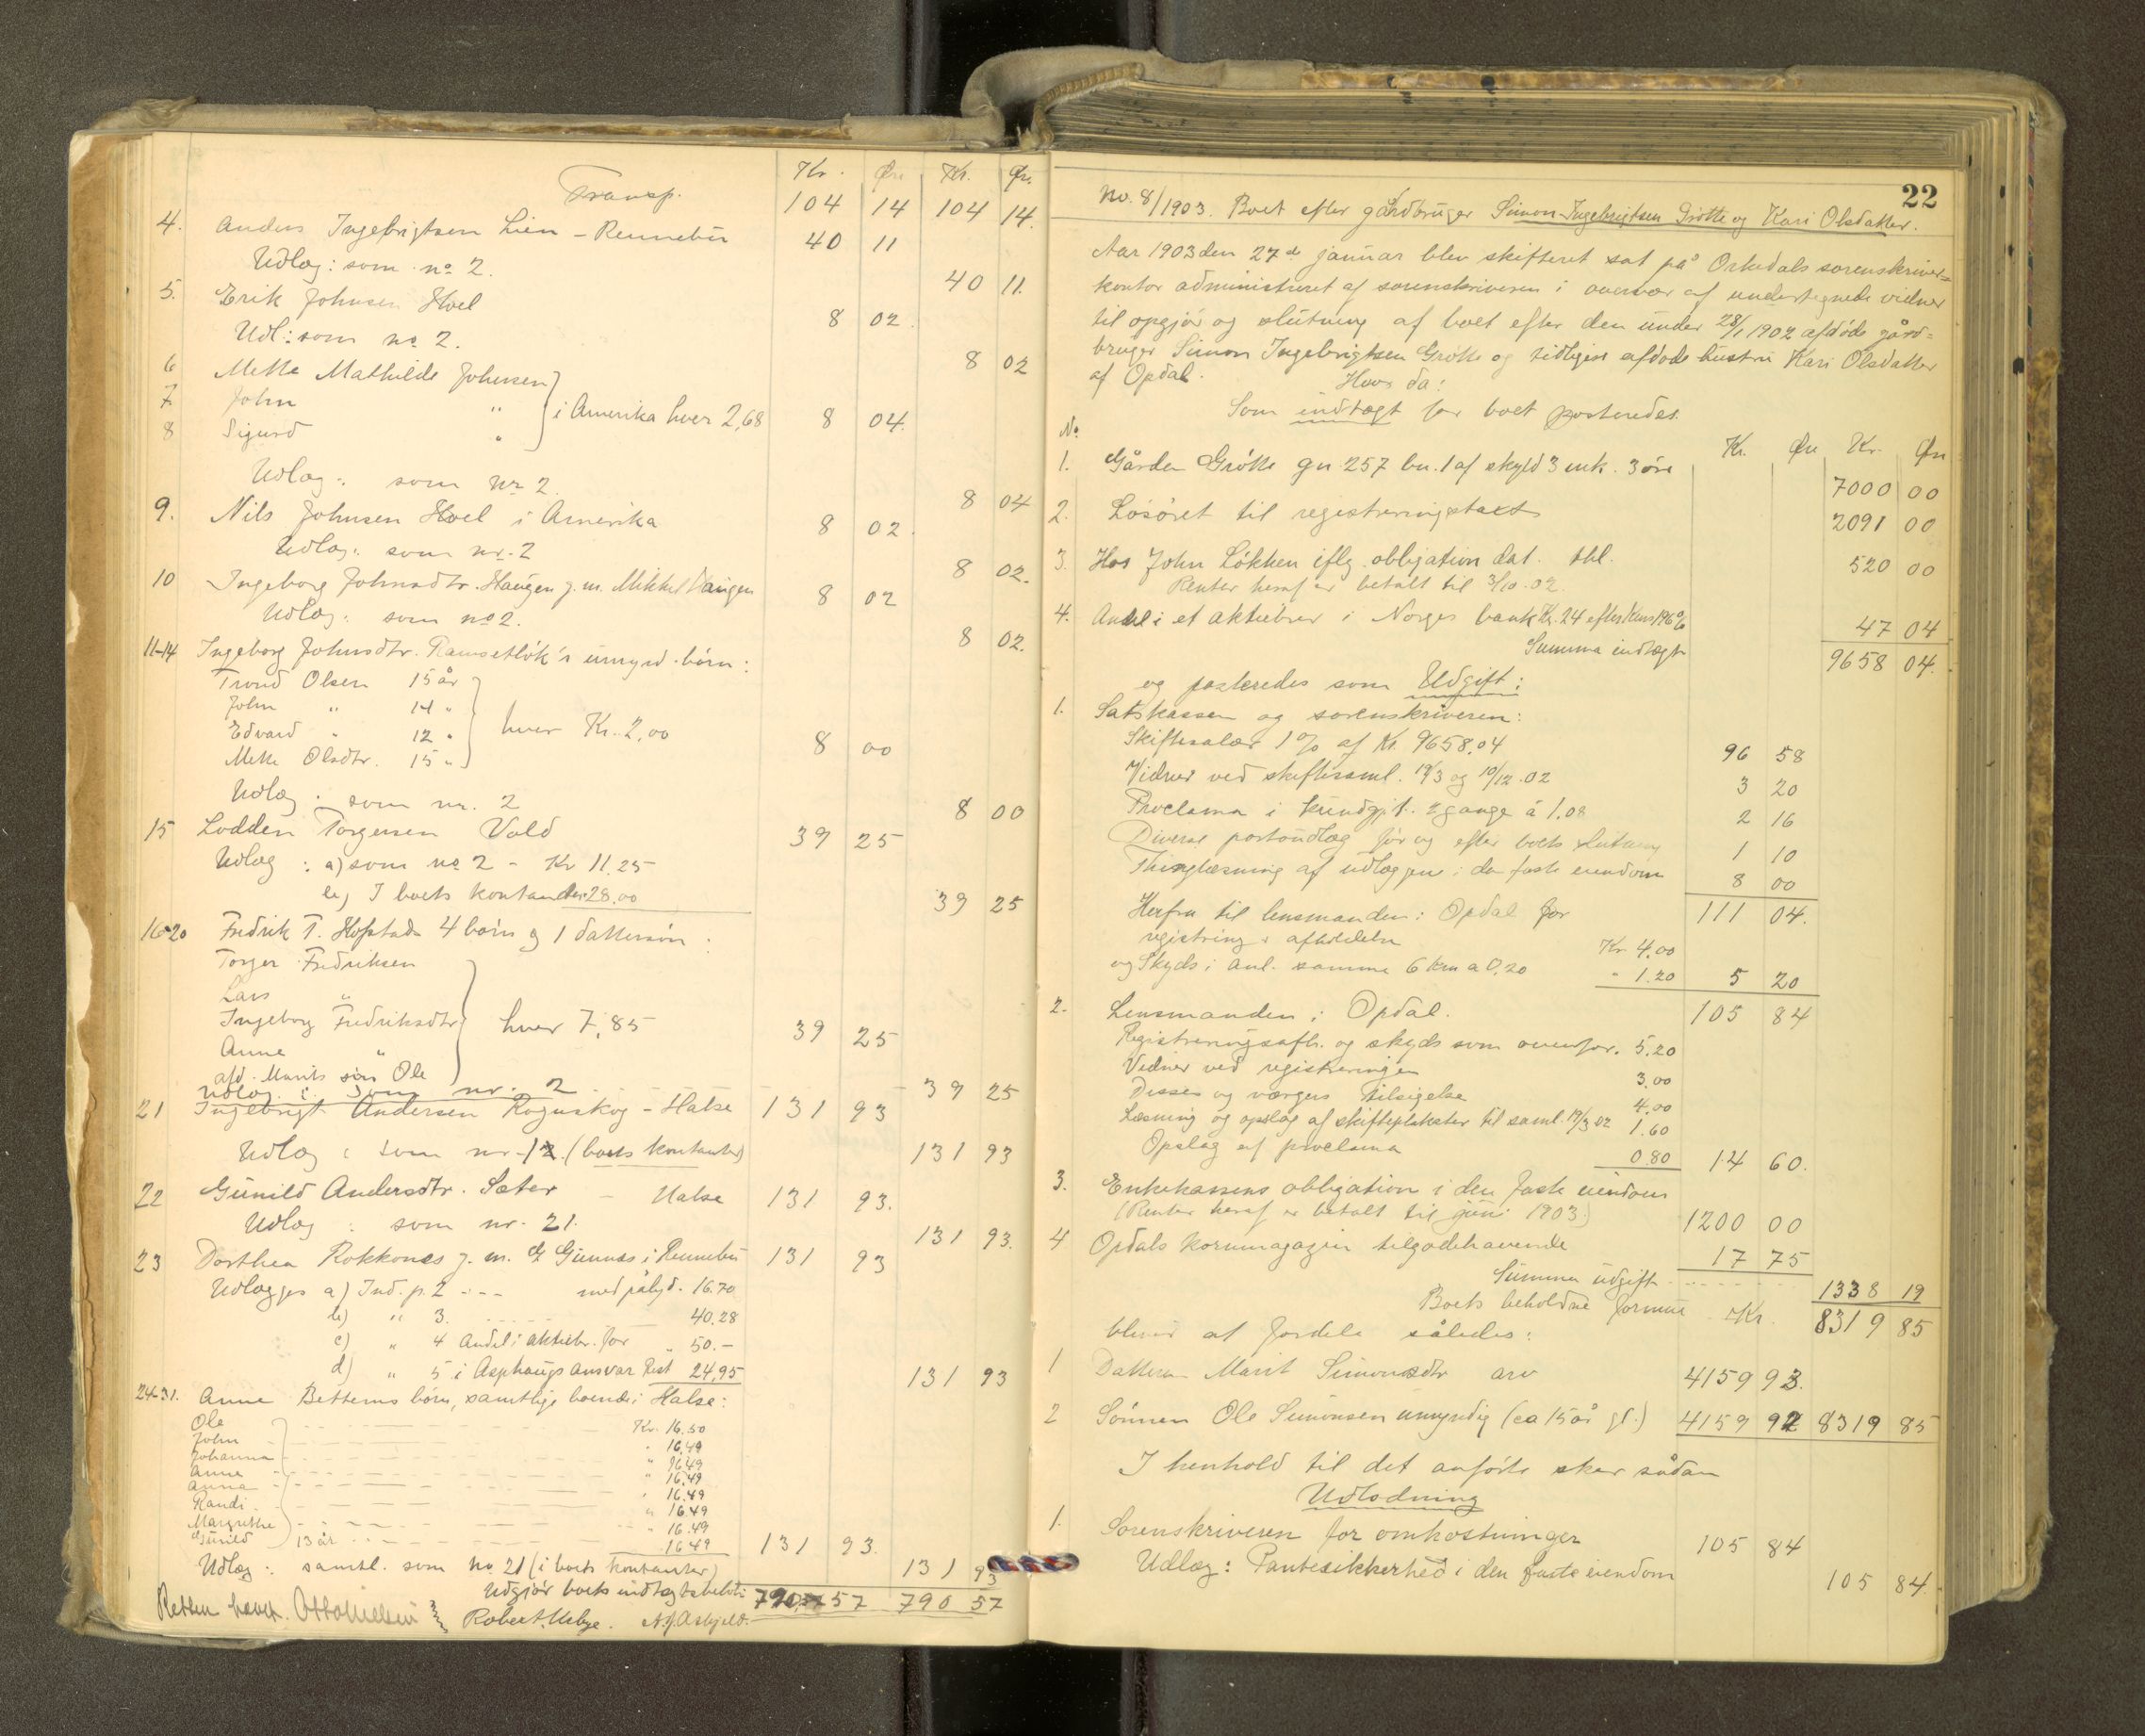 Kr. Øre Kr. Øre
Transp. 104 14 104 14.
4. Anders Ingebrigtsen Lien - Rennebu 40 11
Udlæg: som no 2. 40 11.
5. Erik Johnsen Hoel 8 02.
Udl: som no 2. 8 02
6 Mette Mathilde Johnsen
7 John " i Amerika hver 2,68 8 04.
8 Sigurd "
Udlæg: som nr 2. 8 04
9. Nils Johnsen Hoel i Amerika 8 02.
Udlæg: som nr. 2 8 02.
10 Ingeborg Johnsdtr. Haugen g. m. Mikkel Haugen 8 02
Udlæg: som no 2. 8 02.
11-14 Ingeborg Johnsdtr. Ramsetløk's umynd. børn:
Trond Olsen 15 år
John " 14 "
Edvard " 12 " hver Kr. 2,00 8 00
Mette Olsdtr. 15 "
Udlæg: som nr. 2 8 00
15 Lodden Torgersen Vold 39 25
Udlæg: a) som no 2 - Kr 11.25
b) I boets kontanter 28.00 39 25
16-20 Fredrik T. Hofstads 4 børn og 1 dattersøn:
Torger Fredriksen
Lars "
Ingeborg Fredriksdtr hver 7,85 39 25
Anne "
afd. Marits søn Ole
Udlæg: som nr. 2 39 25
21 Ingebrigt Andersen Rognskog - Halse 131 93
Udlæg: som nr 12. (boets kontanter) 131 93
22 Gunild Andersdtr. Sæter - Halse 131 93.
Udlæg: som nr. 21. 131 93.
23 Dorthea Rokkones g. m. E Gunnæs i Rennebu 131 93
Udlægges a) Ind. p. 2 - - - med påbyd. 16.70
b) " 3. 40.28
c) " 4 Andel i aktiebr. for " 50.-
d) " 5 i Asphaugs ansvar Rest 24,95 131 93
24-31. Anne Betterns børn, samtlige boende i Halse:
Ole Kr. 16.50
John " 16.49
Johanna " 16.49
Anne " 16.49
Anna " 16.49
Randi " 16.49
Margrethe " 16.49
Gunild 13 år 16.49 131 93.
Udlæg: samtl. som no 21 (i boets kontanter) 131 93
Udgjør boets indtægtsbeløb: 790 57 790 57
Retten hævet. Otto Nielsen Robert Uebye. A. J. Askjeld.
22
No. 8/1903. Boet efter gårdbruger Simon Ingebrigtsen Grøtte og Kari Olsdatter.
Aar 1903 den 27de januar blev skifteret sat på Orkedals sorenskriver-
kontor administreret af sorenskriveren i overvær af undertegnede vidner
til opgjør og slutning af boet efter den under 28/1 1902 afdøde gård-
bruger Simon Ingebrigtsen Grøtte og tidligere afdøde hustru Kari Olsdatter
af Opdal. Hvor da:
Som indtægt for boet posteredes.
No. Kr. Øre Kr. Øre
1. Gården Grøtte gn. 257 bn. 1 af skyld 3 mk. 3 øre 7000 00
2. Løsøret til registreringstakst 2091 00
3. Hos John Løkken iflg. obligation dat. tbl. 520 00
Renter heraf er betalt til 3/10. 02.
4. Andel i et aktiebrev i Norges bank Kr. 24 efter Kurs 196% 47 04
Summa indtægt 9658 04.
og posteredes som Udgift:
1. Satskassen og sorenskriveren:
Skiftesalær 1% af Kr. 9658.04 96 58
Vidner ved skiftesaml. 19/3 og 10/12. 02 3 20
Proclama i kundgjt. 2 gange á 1.08 2 16
Diverse portoudlæg før og efter boets slutning 1 10
Thinglæsning af udlæggene i den faste eiendom 8 00
111 04.
Herfra til lensmanden i Opdal for
registrering s afholdelse Kr 4.00
og Skyds i anl. samme 6 km a 0,20 " 1.20 5 20
105 84
2. Lensmanden i Opdal.
Registreringsafh. og skyds som ovenfor. 5.20
Vidner ved registreringen 3.00
Disses og værgers tilsigelse 4.00
Læsning og opslag af skifteplakater til saml. 19/3 02 1.60
Opslag af proclama 0.80 14 60.
3. Enkekassens obligation i den faste eiendom
(Renter heraf er betalt til juni 1903.) 1200 00
4 Opdals Kornmagazin tilgodehavende 17 75
Summa udgift 1338 19
Boets beholdne formue Kr. 8319 85
bliver at fordele således:
1 Datteren Marit Simonsdtr arv 4159 93.
2 Sønnen Ole Simonsen umyndig (ca 15 år gl.) 4159 92 8319 85
I henhold til det anførte sker sådan
Udlodning
1. Sorenskriveren for omkostninger 105 84
Udlæg: Pantesikkerhed i den faste eiendom 105 84.